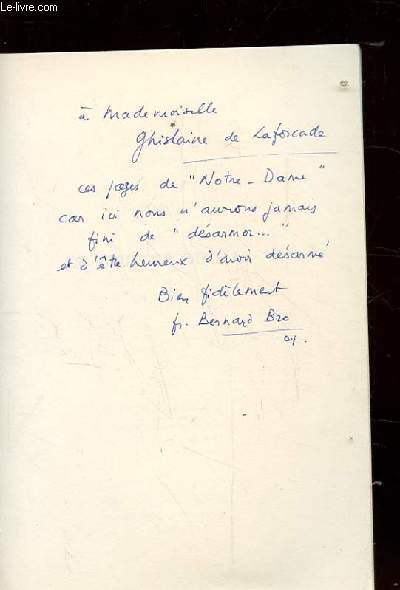 Le-livre.com
à Mademoiselle
Ghislaine de Laforcade
ces pages de "Notre-Dame"
car ici nous n'aurons jamais
fini de "désarmer..."
et d'être heureux d'avoir désarmé
Bien fidèlement
fr. Bernard Bro
op.